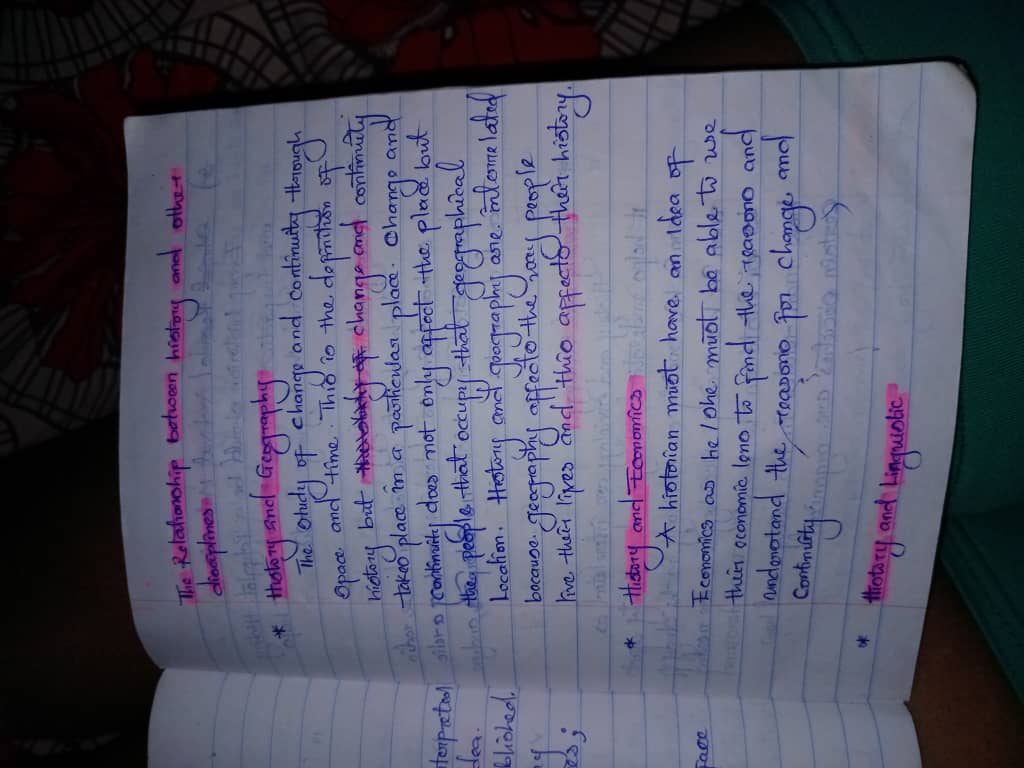 terpreted
dea.
blished.
y
es;
face
The Relationship between history and other
disciplines
* History and Geography
The study of change and continuity through
space and time. This is the definition of
history but the study of change and continuity
takes place in a particular place. Change and
continuity does not only affect the place but
the people that occupy that geographical
Location. History and geography are interrelated
because geography affects the way people
live their lives and this affects their history.
* History and Economics
A historian must have an idea of
Economics as he/she must be able to use
their economic lens to find the reasons and
understand the reasons for change and
Continuity
* History and Linguistic